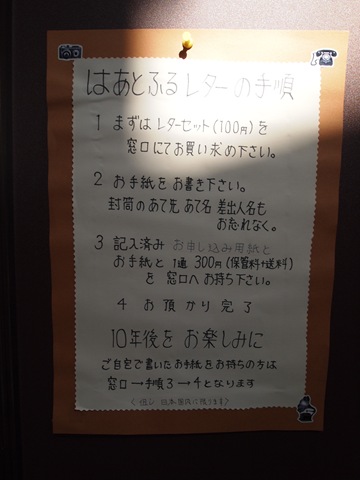 はあとふるレターの手順
1 まずは レターセット(100円)を
窓口にてお買い求め下さい。
2 お手紙を お書き下さい。
封筒のあて先 あて名 差出人名も
お忘れなく。
3 記入済み お申し込み用紙と
お手紙と 1通 300円(保管料+送料)
を 窓口へ お持ち下さい。
4 お預かり完了
10年後を お楽しみに
ご自宅で書いたお手紙をお持ちの方は
窓口→手順3→4となります
(但し 日本国内に限ります)